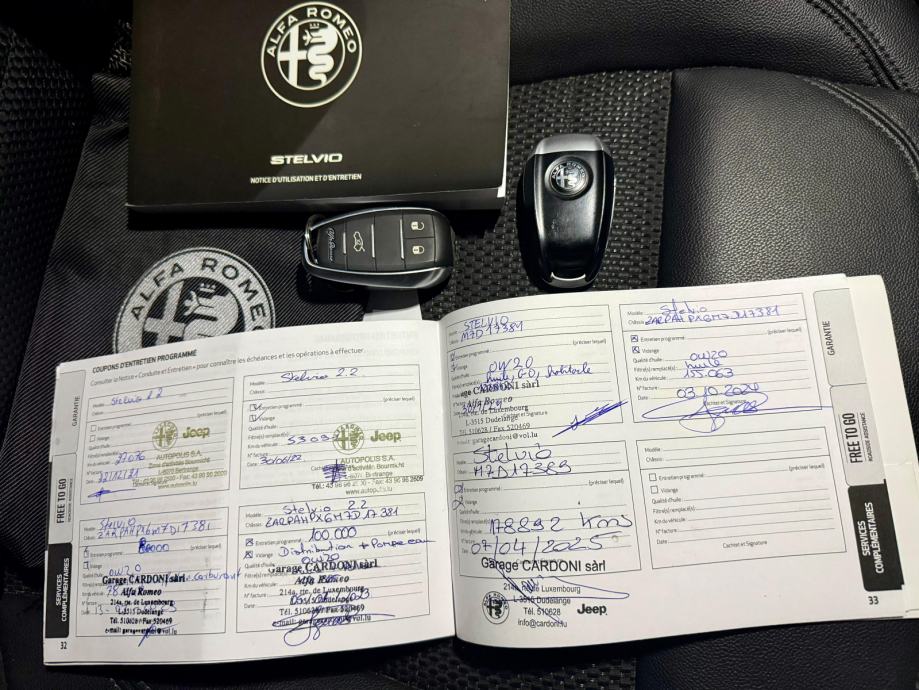 ALFA ROMEO
STELVIO
NOTICE D'UTILISATION ET D'ENTRETIEN
ALFA ROMEO
Alfa Romeo
ALFA ROMEO
COUPONS D'ENTRETIEN PROGRAMMÉ
Consulter la Notice « Conduite et Entretien » pour connaître les échéances et les opérations à effectuer.
GARANTIE
FREE TO GO
SERVICES COMPLÉMENTAIRES
Modèle: Stelvio 2.2
Châssis:
Entretien programmé: (préciser lequel)
Vidange
Qualité d'huile:
Filtre(s) remplacé(s):
Km du véhicule: 27076
N° facture:
Date: 22/12/21
Jeep
AUTOPOLIS S.A.
Zone d'activités Bourmicht
L-8070 Bertrange
www.autopolis.lu
Modèle: Stelvio 2.2
Châssis:
Entretien programmé: (préciser lequel)
Vidange
Qualité d'huile:
Filtre(s) remplacé(s):
Km du véhicule: 5303
N° facture:
Date: 30/06/22
Jeep
AUTOPOLIS S.A.
Zone d'activités Bourmicht
L-8070 Bertrange
Tél.: 43 96 96 2600 - Fax: 43 96 96 2609
www.autopolis.lu
Stelvio
ZARPAHPX6M7D17381
Entretien programmé: (préciser lequel)
Vidange
Qualité d'huile: 0W20
Carburant
Garage CARDONI sàrl
Alfa Romeo
214a, rte. de Luxembourg
L-3515 Dudelange
Tél. 510628 / Fax 520469
e-mail: garagecardoni@vol.lu
32
Modèle: Stelvio 2.2
Châssis: ZARPAHPX6M7D17381
Entretien programmé: 100.000 (préciser lequel)
Vidange Distribution + Pompe eau
Qualité d'huile: 0W20
Garage CARDONI sàrl
Alfa Romeo
214a, rte. de Luxembourg
L-3515 Dudelange
Tél. 510628 / Fax 520469
STELVIO
M7D17381
Entretien programmé: (préciser lequel)
Vidange
Qualité d'huile: 0W20
Filtre(s) remplacé(s): huile, GO, habitacle
Garage CARDONI sàrl
Alfa Romeo
214a, rte. de Luxembourg
L-3515 Dudelange
Tél. 510628 / Fax 520469
e-mail: garagecardoni@vol.lu
Cachet et Signature
Modèle: Stelvio
Châssis: ZARPAHPX6M7D17381
Entretien programmé: (préciser lequel)
Vidange
Qualité d'huile: 0W20
Filtre(s) remplacé(s): huile
Km du véhicule: 155 063
N° facture:
Date: 03.10.2024
Cachet et Signature
Stelvio
M7D17389
(préciser lequel)
Vidange
178892 Kms
07/04/2025
Garage CARDONI sàrl
214a, rte de Luxembourg
L-3515 Dudelange
Tél. 510628
info@cardoni.lu
Jeep
Modèle:
Châssis:
Entretien programmé: (préciser lequel)
Vidange
Qualité d'huile:
Filtre(s) remplacé(s):
Km du véhicule:
N° facture:
Date:
Cachet et Signature
GARANTIE
FREE TO GO
ROADSIDE ASSISTANCE
SERVICES COMPLÉMENTAIRES
33